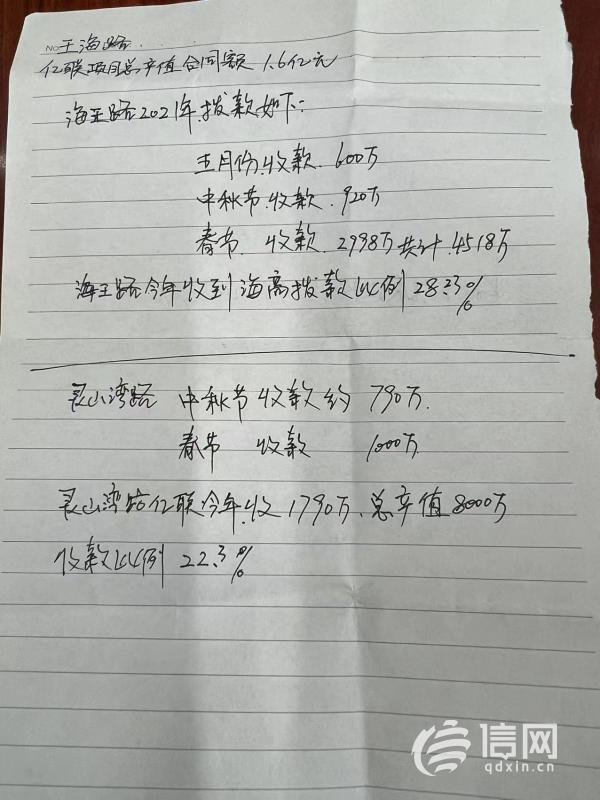 No
王海路
亿联项目总产值合同额 1.6亿元
海王路2021年拨款如下：
五月份.收款. 600万
中秋节.收款. 920万
春节. 收款. 2998万 共计.4518万
海王路今年收到海高拨款比例 28.23%
灵山湾路 中秋节收款约 790万.
春节 收款 1000万
灵山湾路亿联今年.收1790万.总产值8000万
收款比例 22.3%
信网
qdxin.cn